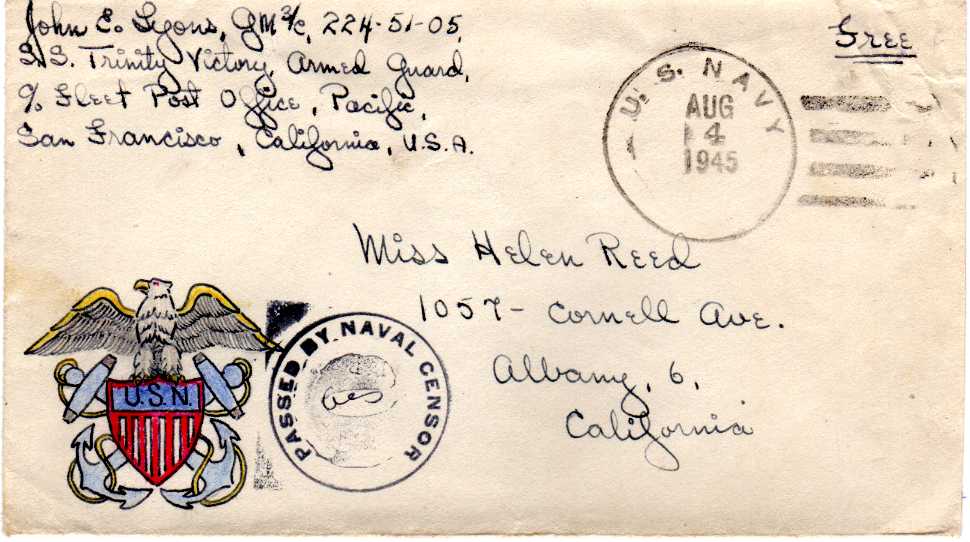 John E. Lyons, GM 3/c, 224-51-05,
S.S. Trinity Victory, Armed Guard,
℅ Fleet Post Office, Pacific,
San Francisco, California, U.S.A.
Free
U. S. NAVY
AUG
4
1945
Miss Helen Reed
1057- Cornell Ave.
Albany, 6,
California
U.S.N.
PASSED BY NAVAL CENSOR